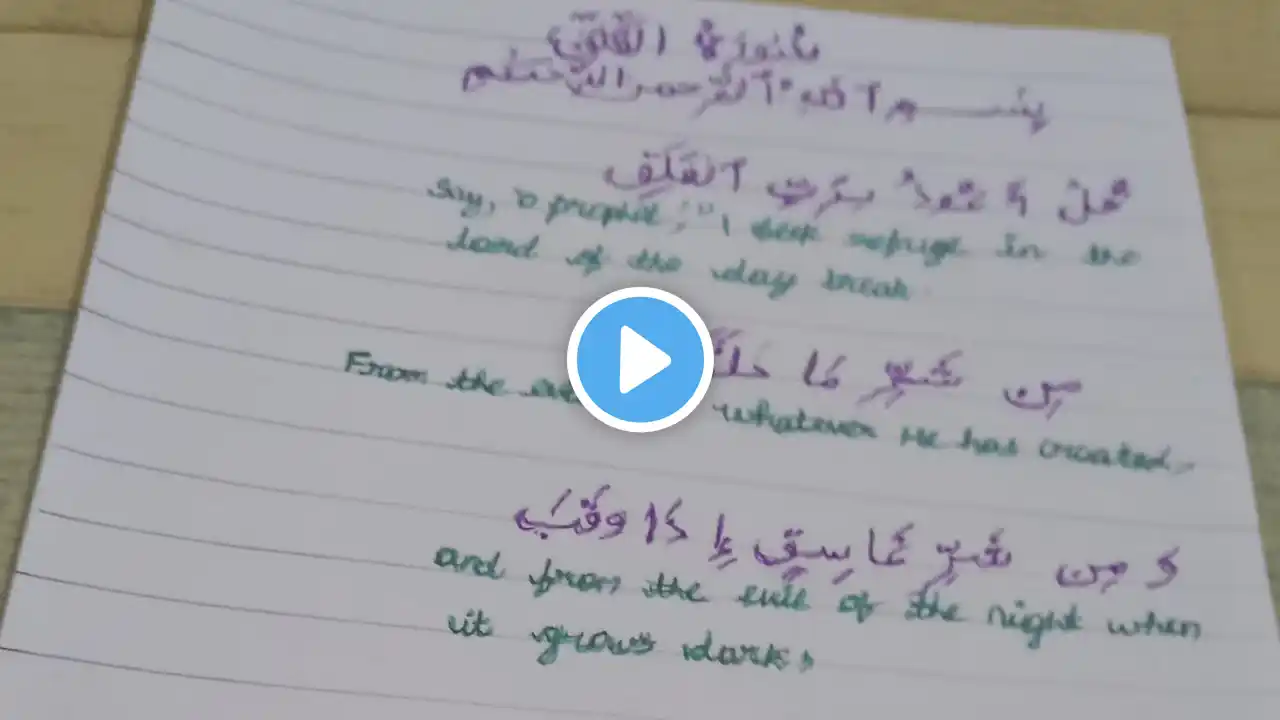 سُورَةُ الْفَلَقِ
بِسْمِ ٱللَّهِ ٱلرَّحْمَٰنِ ٱلرَّحِيمِ
قُلْ أَعُوذُ بِرَبِّ ٱلْفَلَقِ
Say, O prophet, "I seek refuge in the
Lord of the day break
مِن شَرِّ مَا
From the whatever He has created,
وَمِن شَرِّ غَاسِقٍ إِذَا وَقَبَ
and from the evil of the night when
it grows dark,